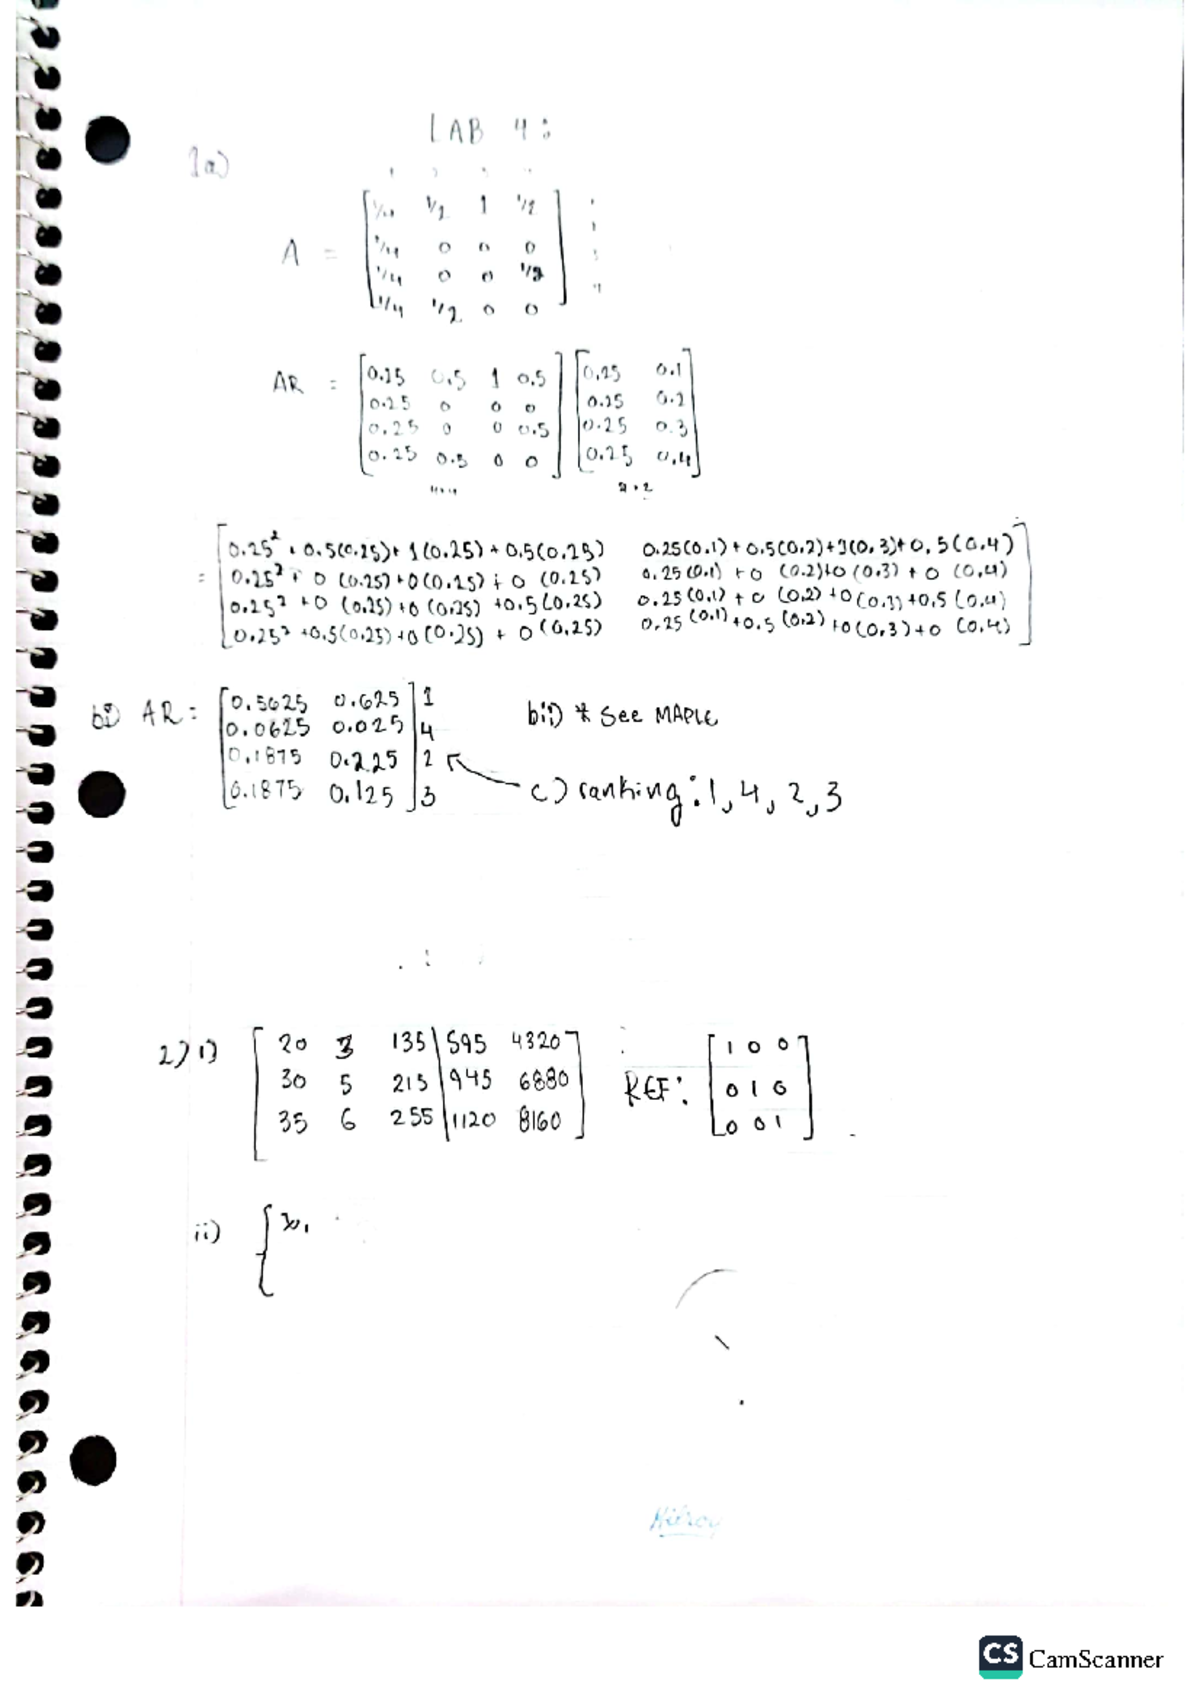 LAB 4:
1a)
A = [ 1/4 1/2 1 1/2
1/4 0 0 0
1/4 0 0 1/2
1/4 1/2 0 0 ]
AR = [ 0.25 0.5 1 0.5 ] [ 0.25 0.1 ]
0.25 0 0 0 0.25 0.2
0.25 0 0 0.5 0.25 0.3
0.25 0.5 0 0 0.25 0.4
4×4
= [ 0.25² + 0.5(0.25) + 1(0.25) + 0.5(0.25) 0.25(0.1) + 0.5(0.2) + 1(0.3) + 0.5(0.4) ]
0.25² + 0 (0.25) + 0(0.25) + 0 (0.25) 0.25(0.1) + 0 (0.2) + 0 (0.3) + 0 (0.4)
0.25² + 0 (0.25) + 0 (0.25) + 0.5(0.25) 0.25(0.1) + 0 (0.2) + 0(0.3) + 0.5 (0.4)
0.25² + 0.5(0.25) + 0(0.25) + 0(0.25) 0.25(0.1) + 0.5 (0.2) + 0(0.3) + 0 (0.4)
bi) AR = [ 0.5625 0.625 ] 1
0.0625 0.025 4
0.1875 0.225 2
0.1875 0.125 3
bii) * See MAPLE
c) ranking: 1, 4, 2, 3
2) i) [ 20 3 135 | 595 4320 ]
30 5 215 | 945 6880
35 6 255 | 1120 8160
REF: [ 1 0 0 ]
0 1 0
0 0 1
ii) {
Hilroy
CS CamScanner